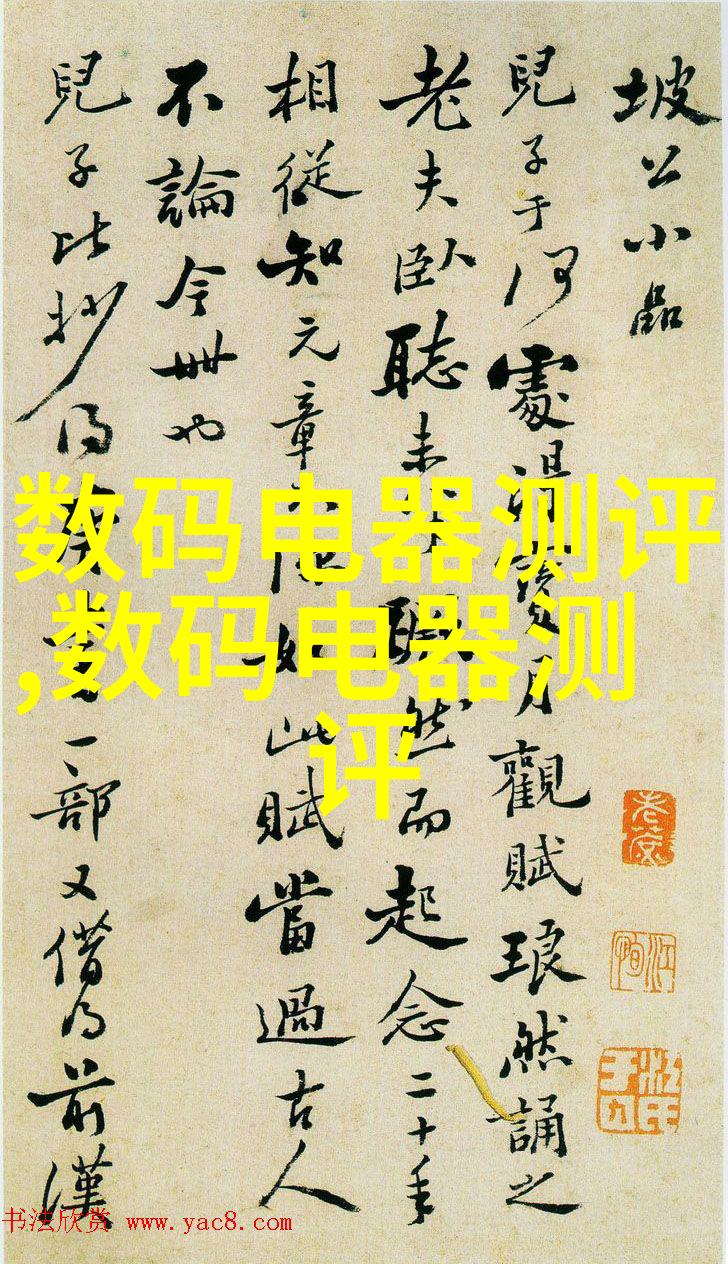 坡公小品
兒子于何處得寶月觀賦琅然誦之
老夫臥聽未半躍然而起念二十年
相從知元章如此賦當過古人
不論今世也
兒子比抄得唐書一部又借得前漢
数码电器测评
,数码电器测
评
书法欣赏 www.yac8.com